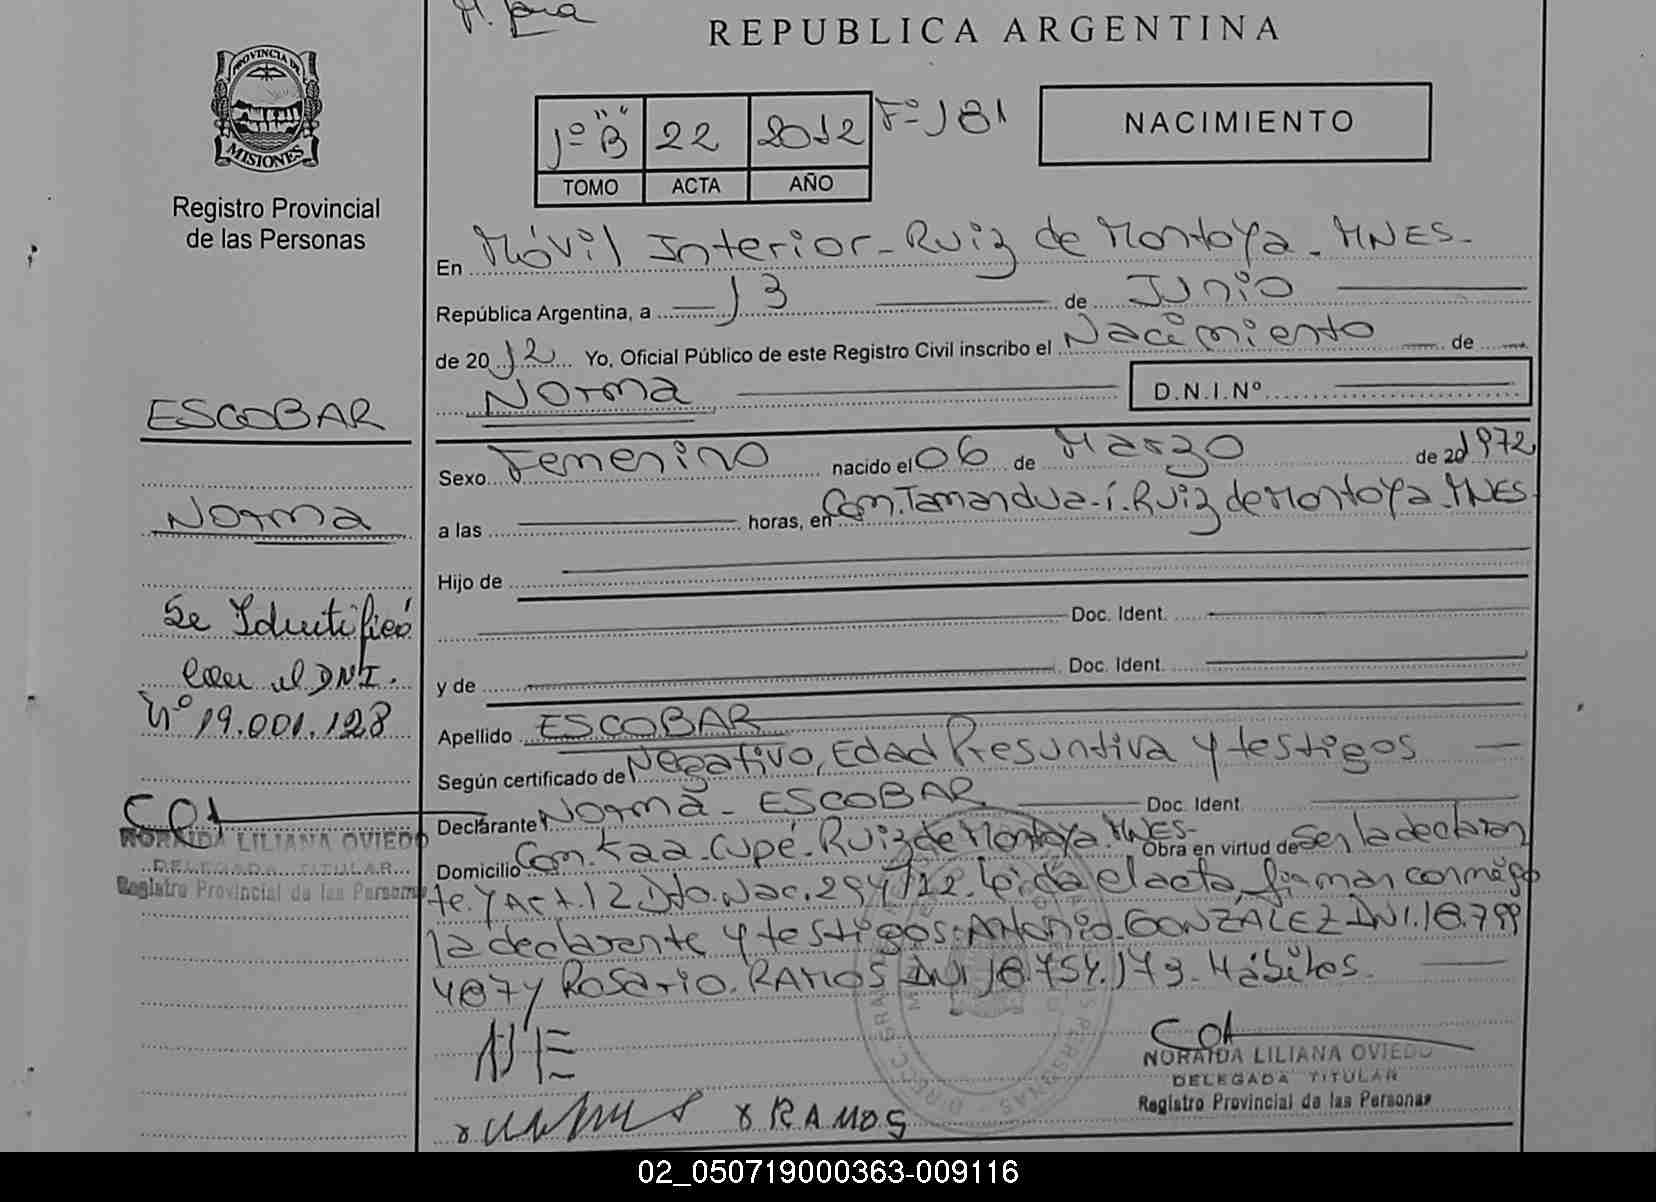 REPUBLICA ARGENTINA
PROVINCIA DE
MISIONES
Registro Provincial
de las Personas
1º "B" 22 2012 Fº 181
TOMO ACTA AÑO
NACIMIENTO
En Móvil Interior - Ruiz de Montoya - MNES -
República Argentina, a 13 de Junio
de 2012 Yo, Oficial Público de este Registro Civil inscribo el Nacimiento de
Norma D.N.I.Nº
ESCOBAR
Norma
Se Identificó
con el DNI.
Nº 19.001.128
NORAIDA LILIANA OVIEDO
DELEGADA TITULAR
Registro Provincial de las Personas
Sexo Femenino nacido el 06 de Marzo de 20 1972
a las horas, en Com. Tamandua-í. Ruiz de Montoya. MNES
Hijo de
Doc. Ident.
y de Doc. Ident.
Apellido ESCOBAR
Según certificado de Negativo, Edad Presuntiva y testigos
Declarante Norma - ESCOBAR Doc. Ident.
Domicilio Com. Kaa-Cupé. Ruiz de Montoya. MNES- Obra en virtud de Ser la declaran
te. y Art. 12 Dto. Nac. 294/12. Leída el acta, firman conmigo
la declarente y testigos: Antonio. GONZÁLEZ DNI. 18.799
487 y Rosario. RAMOS DNI 18.754.173. Hábiles.
NE
x RAMOS
NORAIDA LILIANA OVIEDO
DELEGADA TITULAR
Registro Provincial de las Personas
02_050719000363-009116